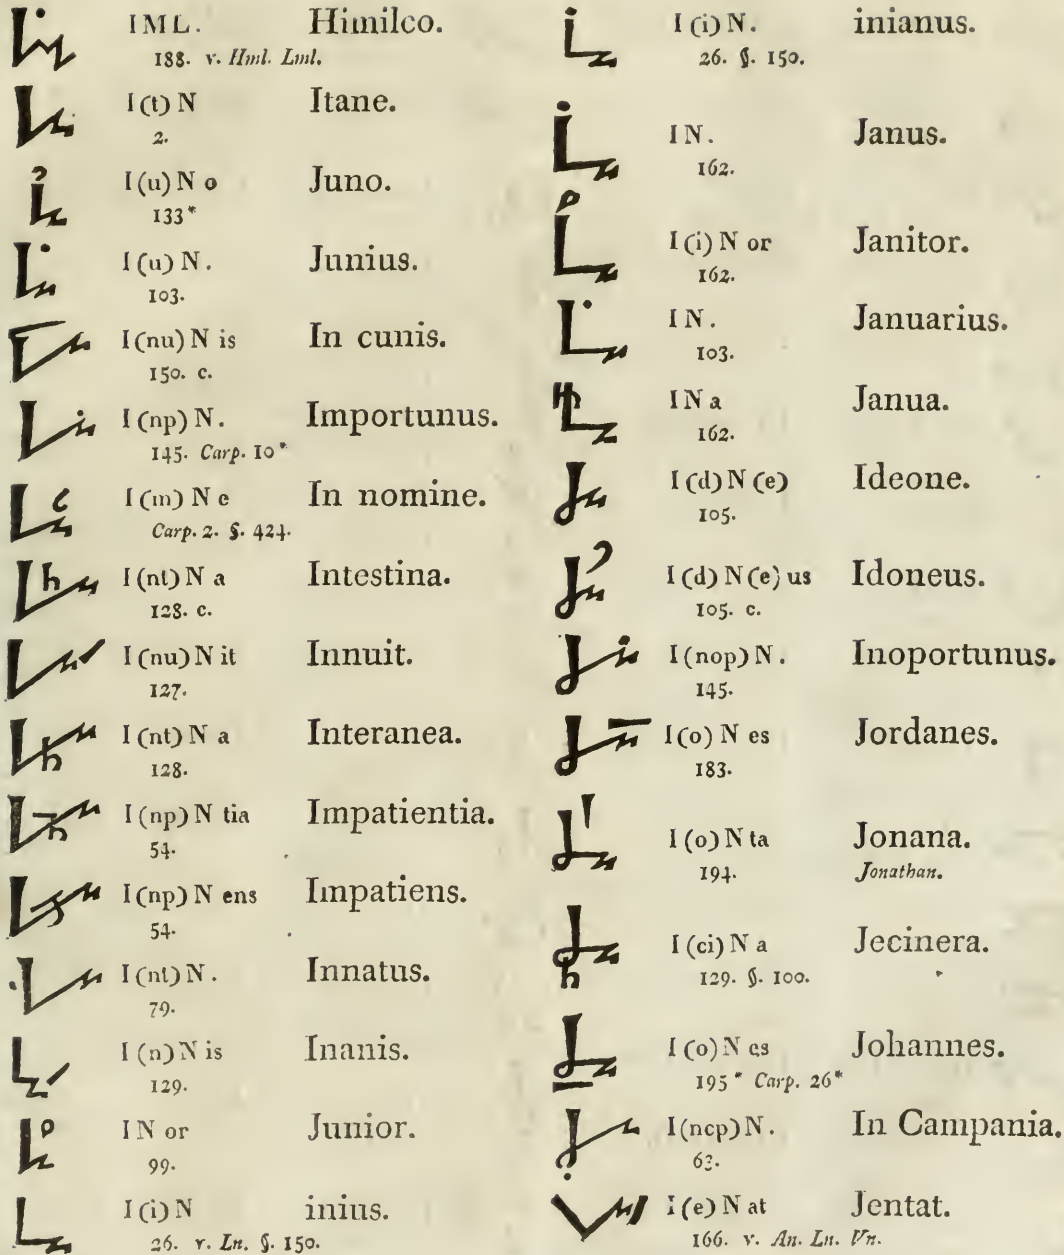 IML. Himilco.
188. v. Hml. Lml.
I(t)N Itane.
2.
I(u)No Juno.
133*
I(u)N. Junius.
103.
I(nu)N is In cunis.
150. c.
I(np)N. Importunus.
145. Carp. 10*
I(m)Ne In nomine.
Carp. 2. §. 424.
I(nt)Na Intestina.
128. c.
I(nu)N it Innuit.
127.
I(nt)Na Interanea.
128.
I(np)N tia Impatientia.
54.
I(np)N ens Impatiens.
54.
I(nt)N. Innatus.
79.
I(n)N is Inanis.
129.
IN or Junior.
99.
I(i)N inius.
26. v. Ln. §. 150.
I(i)N. inianus.
26. §. 150.
IN. Janus.
162.
I(i)N or Janitor.
162.
IN. Januarius.
103.
INa Janua.
162.
I(d)N(e) Ideone.
105.
I(d)N(e)us Idoneus.
105. c.
I(nop)N. Inoportunus.
145.
I(o)N es Jordanes.
183.
I(o)N ta Jonana.
194. Jonathan.
I(ci)Na Jecinera.
129. §. 100.
I(o)N es Johannes.
195* Carp. 26*
I(ncp)N. In Campania.
63.
I(e)N at Jentat.
166. v. An. Ln. Vn.